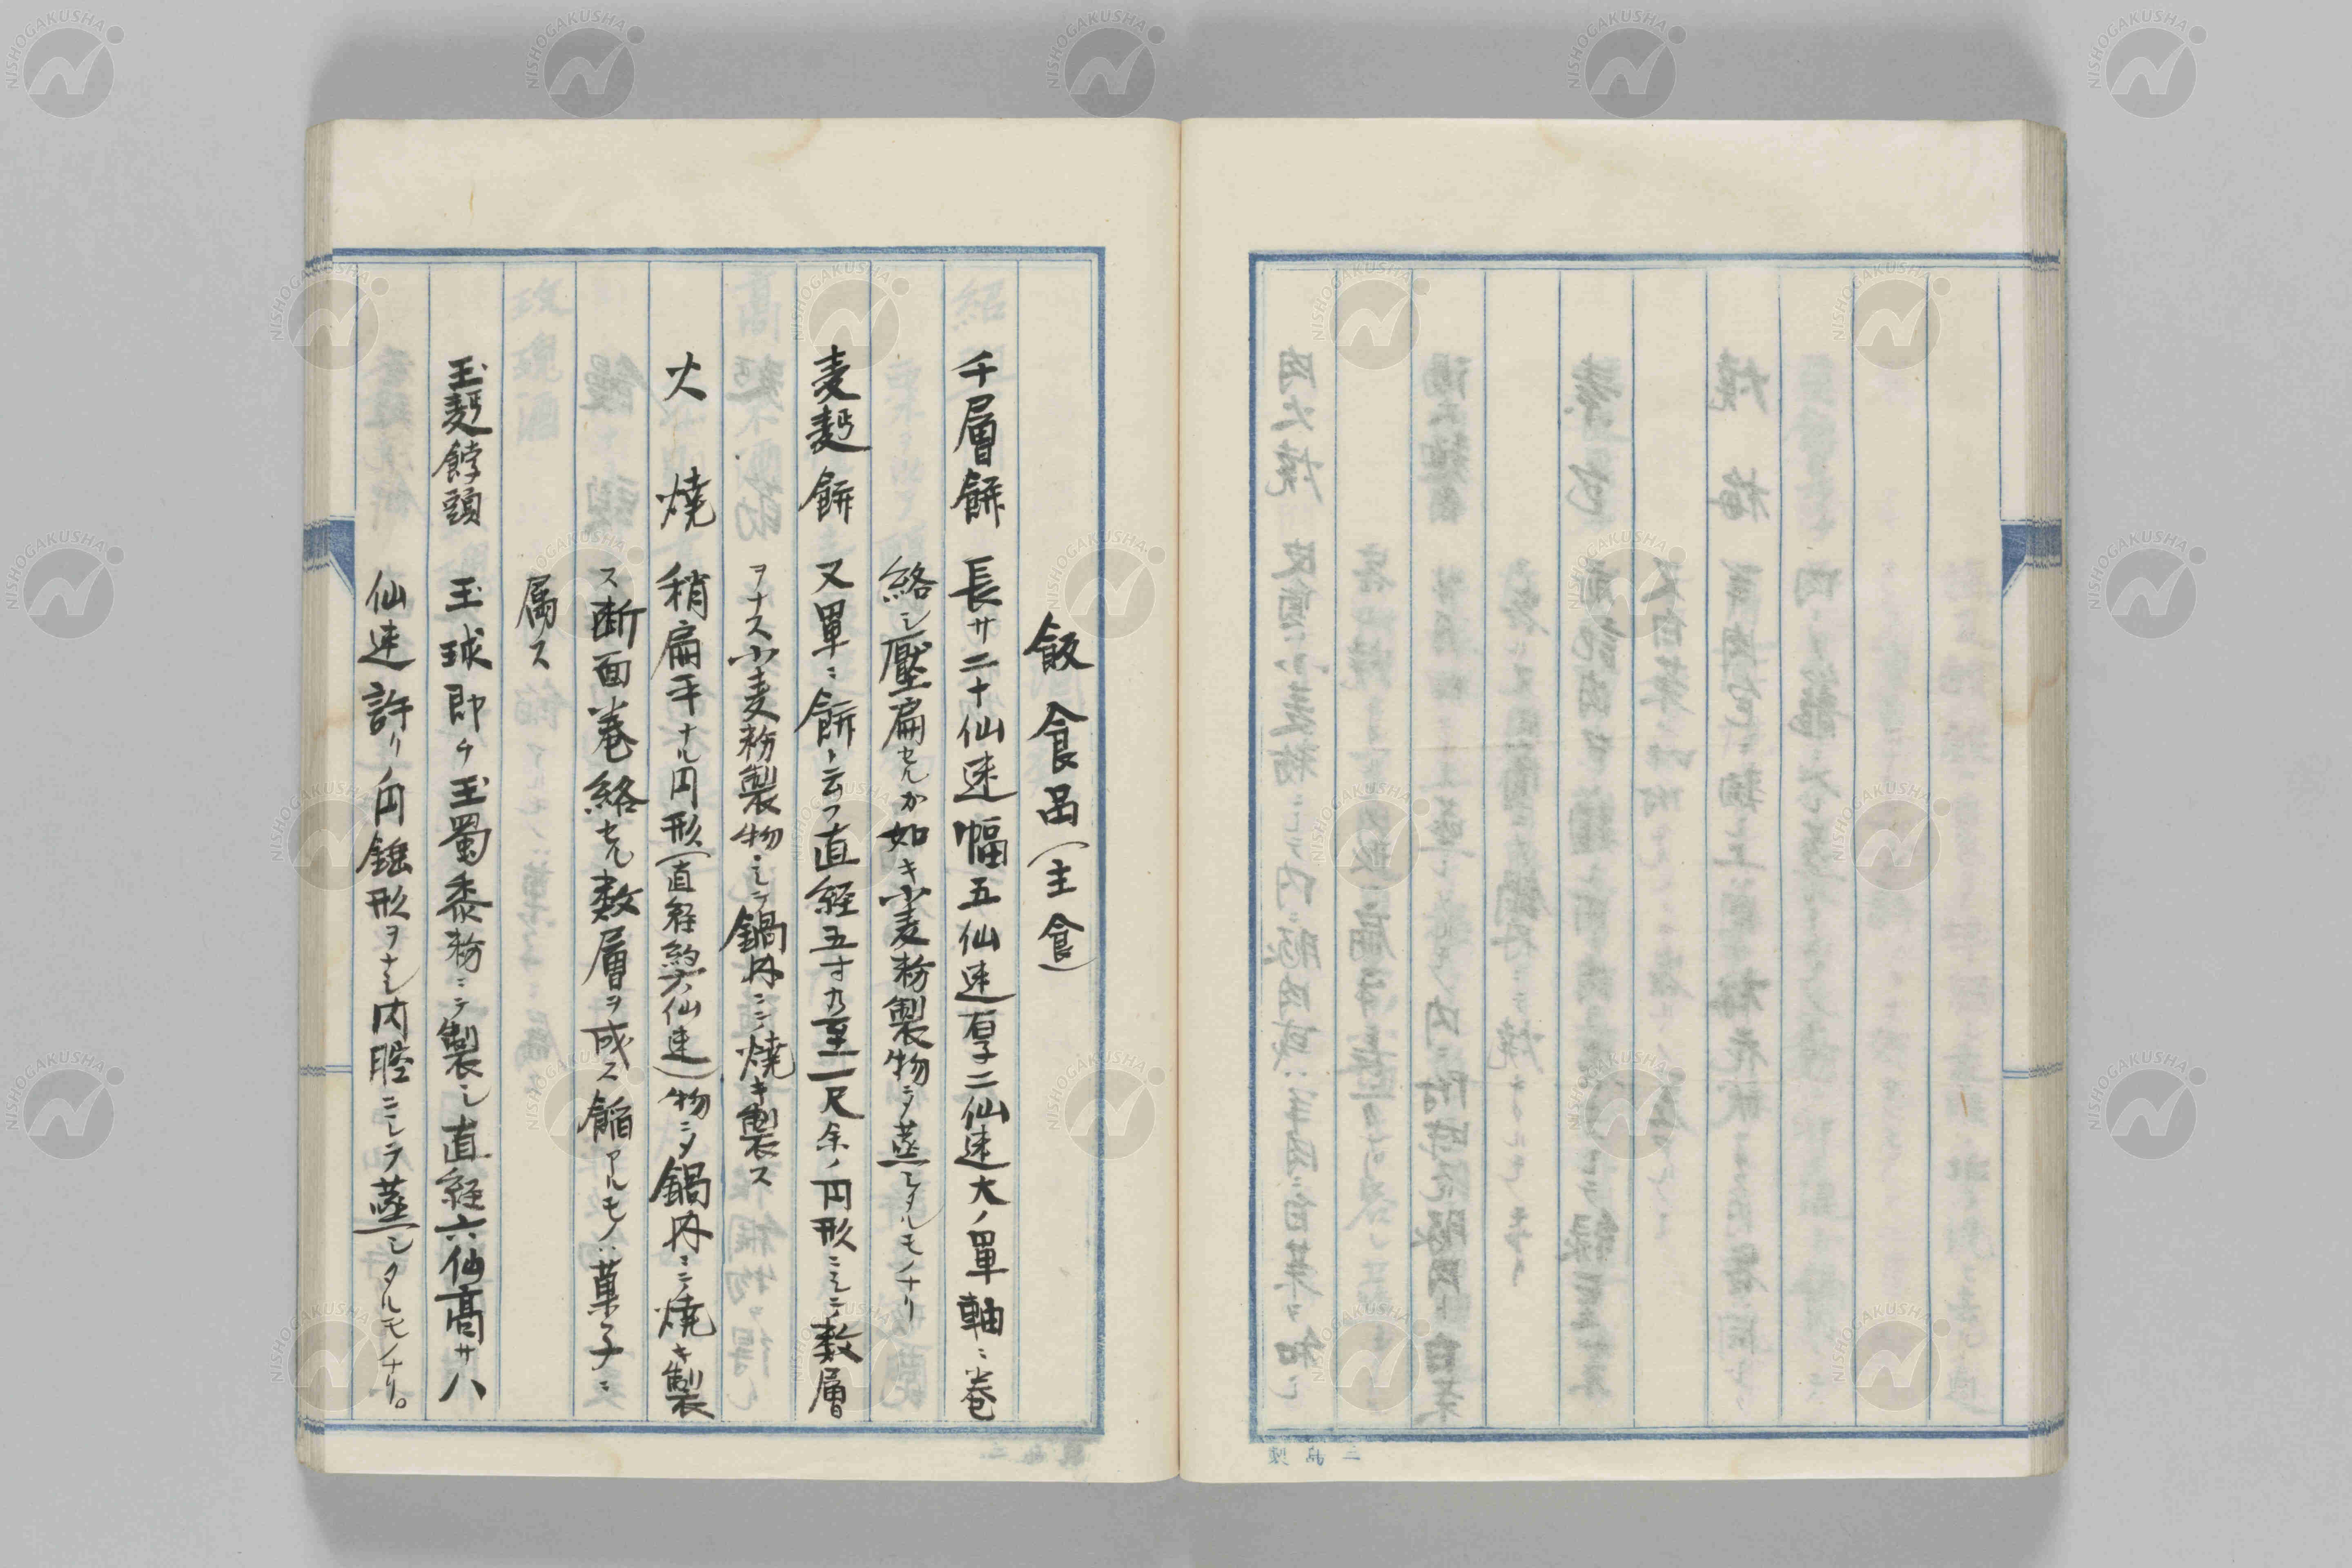 飯食品(主食)
千層餅 長サ二十仙迷幅五仙迷厚二仙迷大ノ單軸ニ巻
絡シ壓扁セルカ如キ小麦粉製物ヲ蒸シタルモノナリ
麦麪餅 又單ニ餅ト云フ直経五寸乃至一尺余ノ円形ニシテ数層
ヲナス小麦粉製物ニシテ鍋内ニテ焼キ製ス
火焼 稍扁平ナル円形(直経約六仙迷)物ニシテ鍋内ニテ焼キ製
ス断面巻絡セル数層ヲ成ス餡アルモノハ菓子ニ
属ス
玉麪餑頭 玉球即チ玉蜀黍粉ニテ製シ直経六仙高サ八
仙迷許リノ円錐形ヲナシ内腔ニシテ蒸シタルモノナリ。
NISHOGAKUSHA